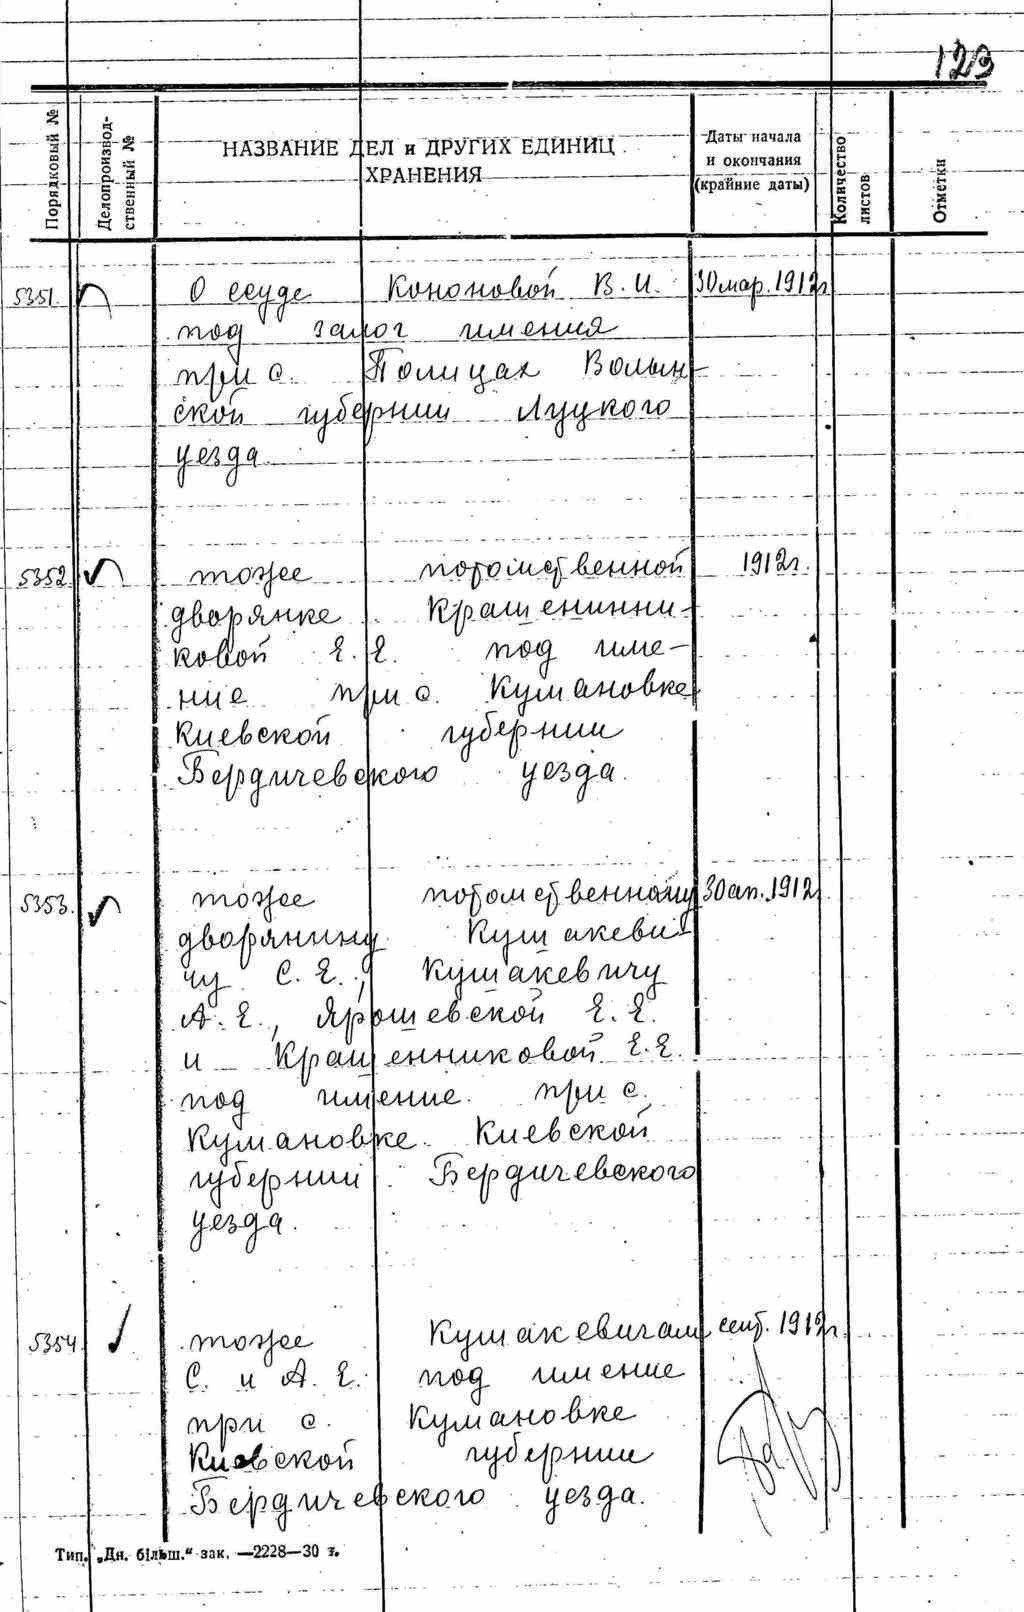 123
Порядковый №
Делопроизвод-
ственный №
НАЗВАНИЕ ДЕЛ и ДРУГИХ ЕДИНИЦ
ХРАНЕНИЯ
Даты начала
и окончания
(крайние даты)
Количество
листов
Отметки
5351. О ссуде Кононовой В.И. 30 мар. 1912г
под залог имения
при с. Полицах Волын-
ской губернии Луцкого
уезда.
5352. тоже потомственной 1912г.
дворянке Крашенинни-
ковой Е.Е. под име-
ние при с. Кумановке
Киевской губернии
Бердичевского уезда.
5353. тоже потомственному 30 ап. 1912г.
дворянину Кушакеви-
чу С.Е., Кушакевичу
А.Е., Ярошевской Е.Е.
и Крашенниковой Е.Е.
под имение при с.
Кумановке Киевской
губернии Бердичевского
уезда.
5354. тоже Кушакевичам сент. 1912г.
С. и А. Е. под имение
при с. Кумановке
Киевской губернии
Бердичевского уезда.
Тип. „Дн. більш." зак. —2228—30 т.